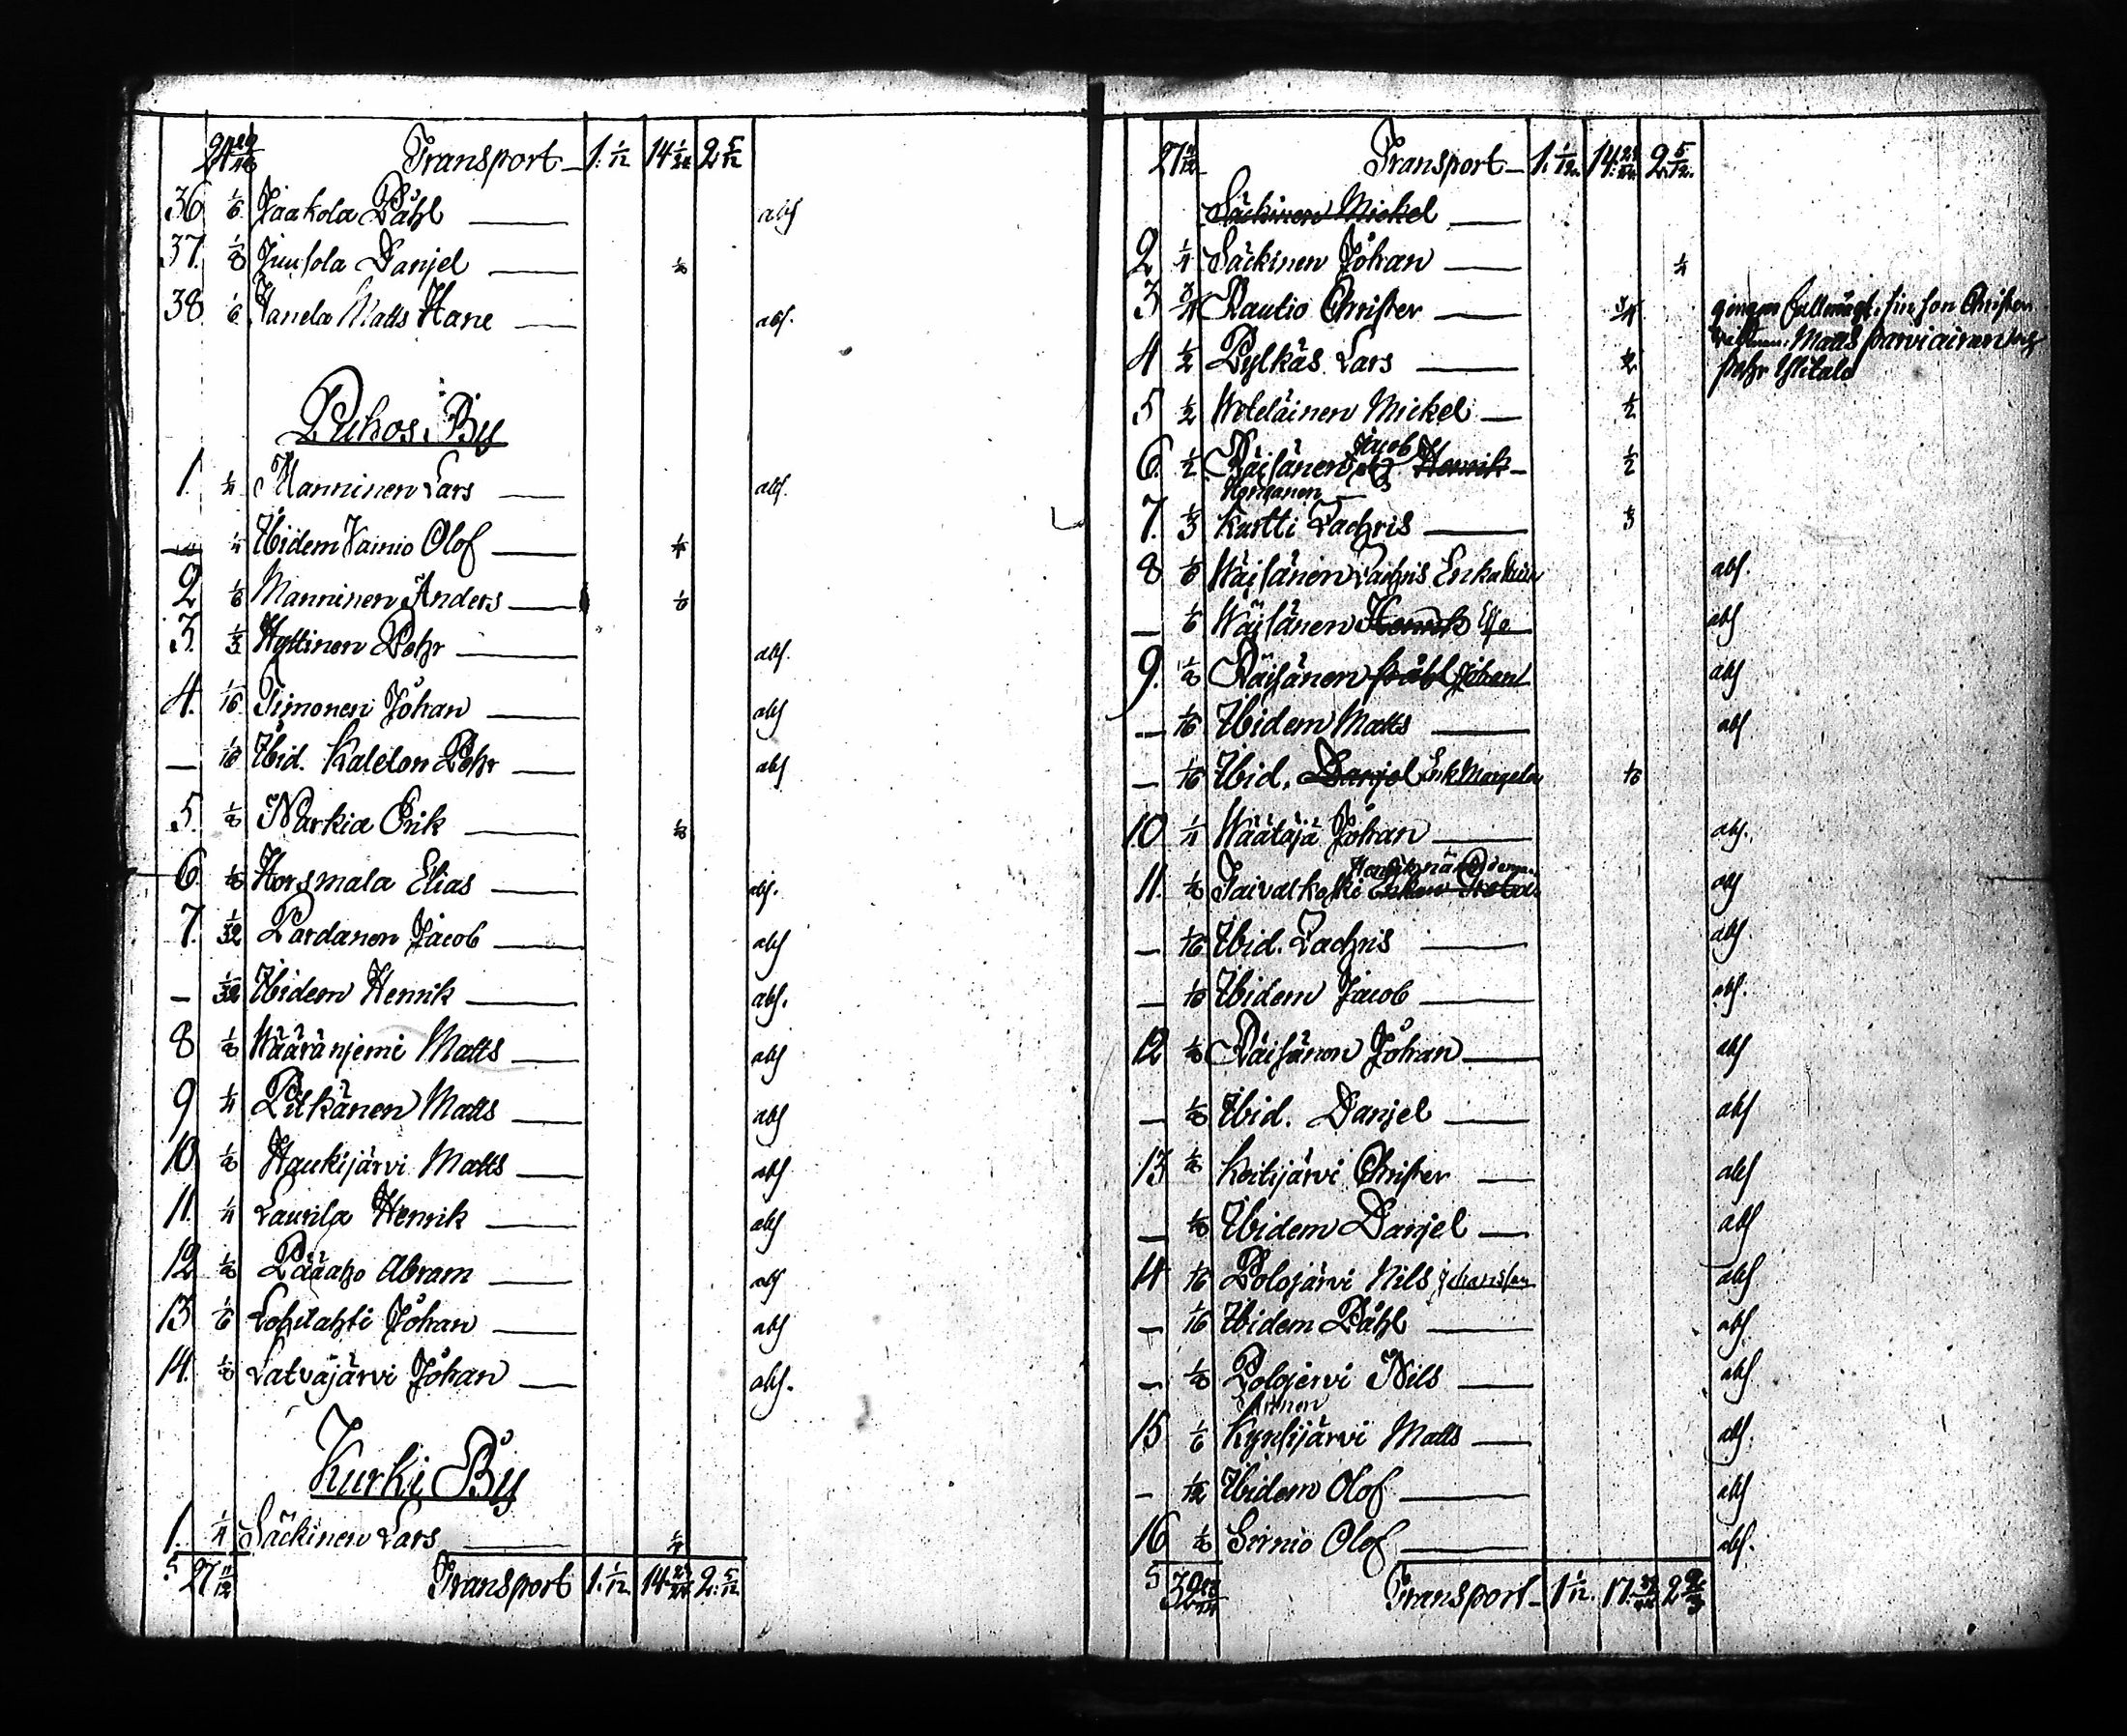 Transport 1. 1/12 14 1/24 2 5/12
36 1/6 Jaakola Påhl abs
37. 1/8 Juusola Danjel 1/8
38. 1/6 Hanela Matts Hane abs.
Puhos By
1. 1/4 Manninen Lars abs.
— 1/4 Ibidem Vainio Olof 1/4
2 1/6 Manninen Anders 1/6
3. 1/3 Hyttinen Pehr abs.
4. 1/16 Timonen Johan abs
— 1/16 Ibid. Pehr abs
5. 1/8 Narkia Erik 1/8
6. 1/8 Horsmala Elias abs.
7. 1/32 Pardanen Jacob abs
— 1/32 Ibidem Henrik abs.
8 1/8 Wääränjemi Matts abs
9 1/4 Pitkänen Matts abs
10 1/8 Haukijärvi Matts abs
11. 1/4 Laurila Henrik abs
12 1/8 Pääaho Abram abs
13 1/6 Lohilahti Johan abs
14. 1/8 Latvajärvi Johan abs.
Kurki By
1. 1/4 Säckinen Lars 1/4
S 27 11/12 Transport 1. 1/12. 14 23/24 2. 5/12.
27 11/12 Transport 1. 1/12. 14. 23/24. 2. 5/12.
Säckinen Mickel
2 1/4 Säckinen Johan 1/4
3 3/4 Rautio Christer 3/4 son Christer
Matts Parviainen och
4 1/2 Pylkäs Lars 1/2 Pehr Ylitalo
5 1/2 Weteläinen Mickel 1/2
Jacob
6. 1/2 Räisänen Henrik 1/2
7. 1/3 Kartti Zachris 1/3
8 1/6 Wäisänen Zachris Enka abs.
— 1/6 Wäisänen Henrik abs
9. 1/8 Räisänen Påhl Johan abs
— 1/16 Ibidem Matts abs
— 1/16 Ibid. Danjel Enk Margeta 1/16
10 1/4 Wäätäjä Johan abs.
11. 1/8 Taivalkoski abs
— 1/16 Ibid. Zachris abs
— 1/16 Ibidem Jacob abs.
12 1/8 Räisänen Johan abs
— 1/8 Ibid. Danjel abs
13 1/8 Koitijärvi Christer abs
— 1/8 Ibidem Danjel abs
14 1/16 Polojärvi Nils Johansson abs
— 1/16 Ibidem Påhl abs.
— 1/8 Polojervi Nils abs
15 1/6 Kynsijärvi Matts abs.
— 1/12 Ibidem Olof abs
16 1/8 Sirniö Olof abs.
S Transport 1 1/12. 17. 2 2/3